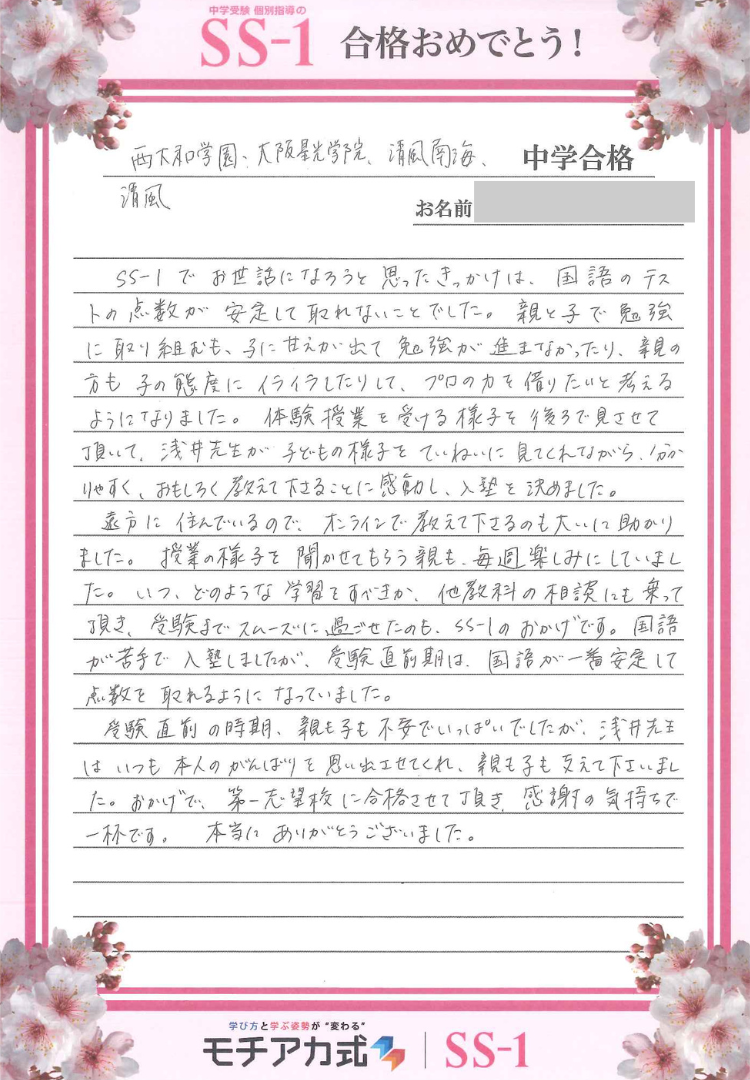 中学受験 個別指導の
SS-1 合格おめでとう!
西大和学園、大阪星光学院、清風南海、 中学合格
清風
お名前
SS-1でお世話になろうと思ったきっかけは、国語のテス
トの点数が安定して取れないことでした。親と子で勉強
に取り組むも、子に甘えが出て勉強が進まなかったり、親の
方も子の態度にイライラしたりして、プロの力を借りたいと考える
ようになりました。体験授業を受ける様子を後ろで見させて
頂いて、浅井先生が子どもの様子をていねいに見てくれながら、分か
りやすく、おもしろく教えて下さることに感動し、入塾を決めました。
遠方に住んでいるので、オンラインで教えて下さるのも大いに助かり
ました。授業の様子を聞かせてもらう親も、毎週楽しみにしていまし
た。いつ、どのような学習をすべきか、他教科の相談にも乗って
頂き、受験までスムーズに過ごせたのも、SS-1のおかげです。国語
が苦手で入塾しましたが、受験直前期は、国語が一番安定して
点数を取れるようになっていました。
受験直前の時期、親も子も不安でいっぱいでしたが、浅井先生
はいつも本人のがんばりを思い出させてくれ、親も子も支えて下さいまし
た。おかげで、第一志望校に合格させて頂き、感謝の気持ちで
一杯です。 本当にありがとうございました。
学び方と学ぶ姿勢が“変わる”
モチアカ式 SS-1